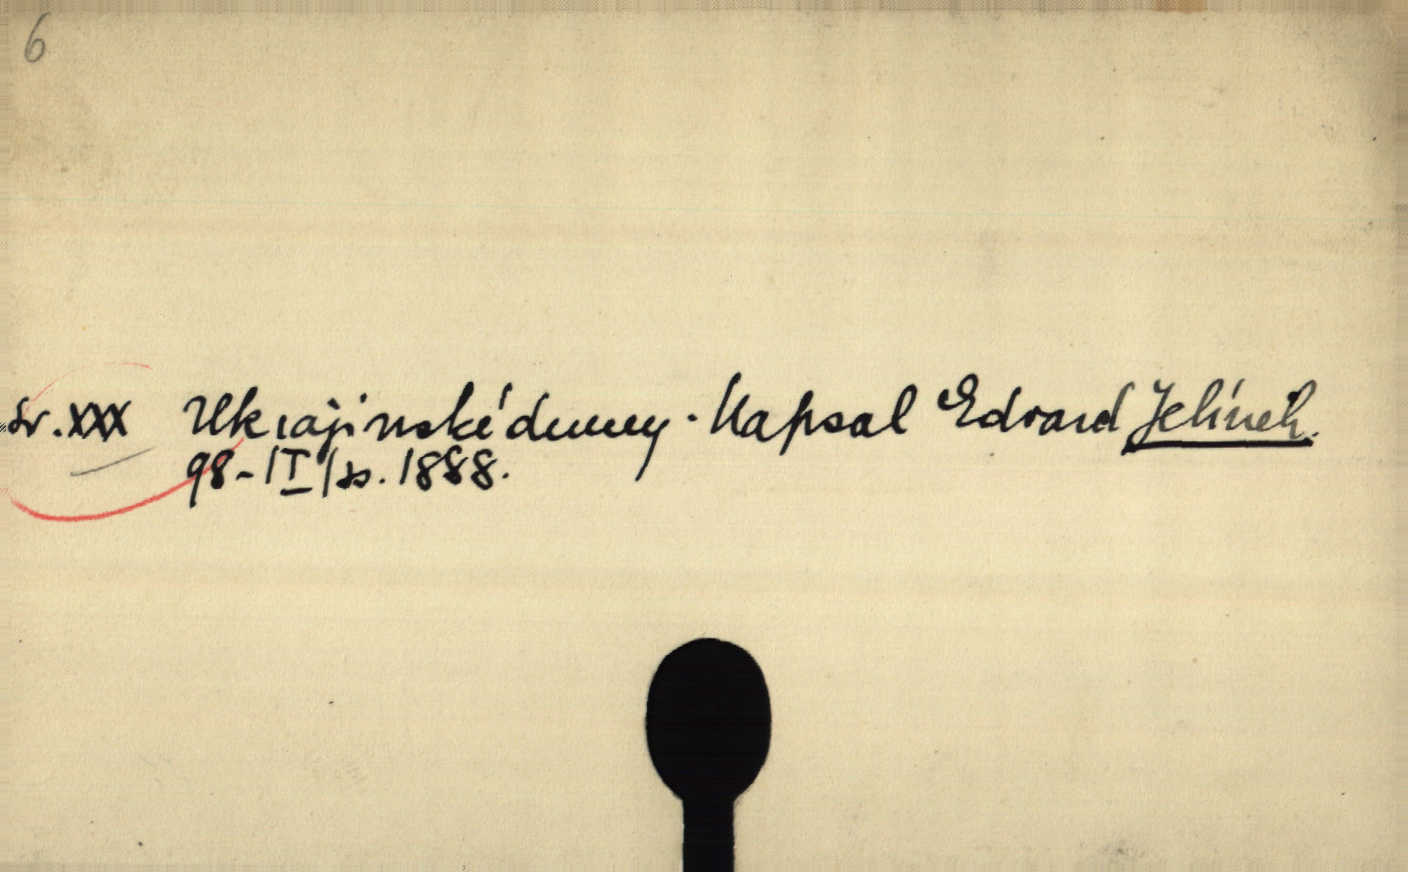 6
Sv. XXX Ukrajinské dumy. Napsal Edvard Jelínek.
98-|I|ss. 1888.